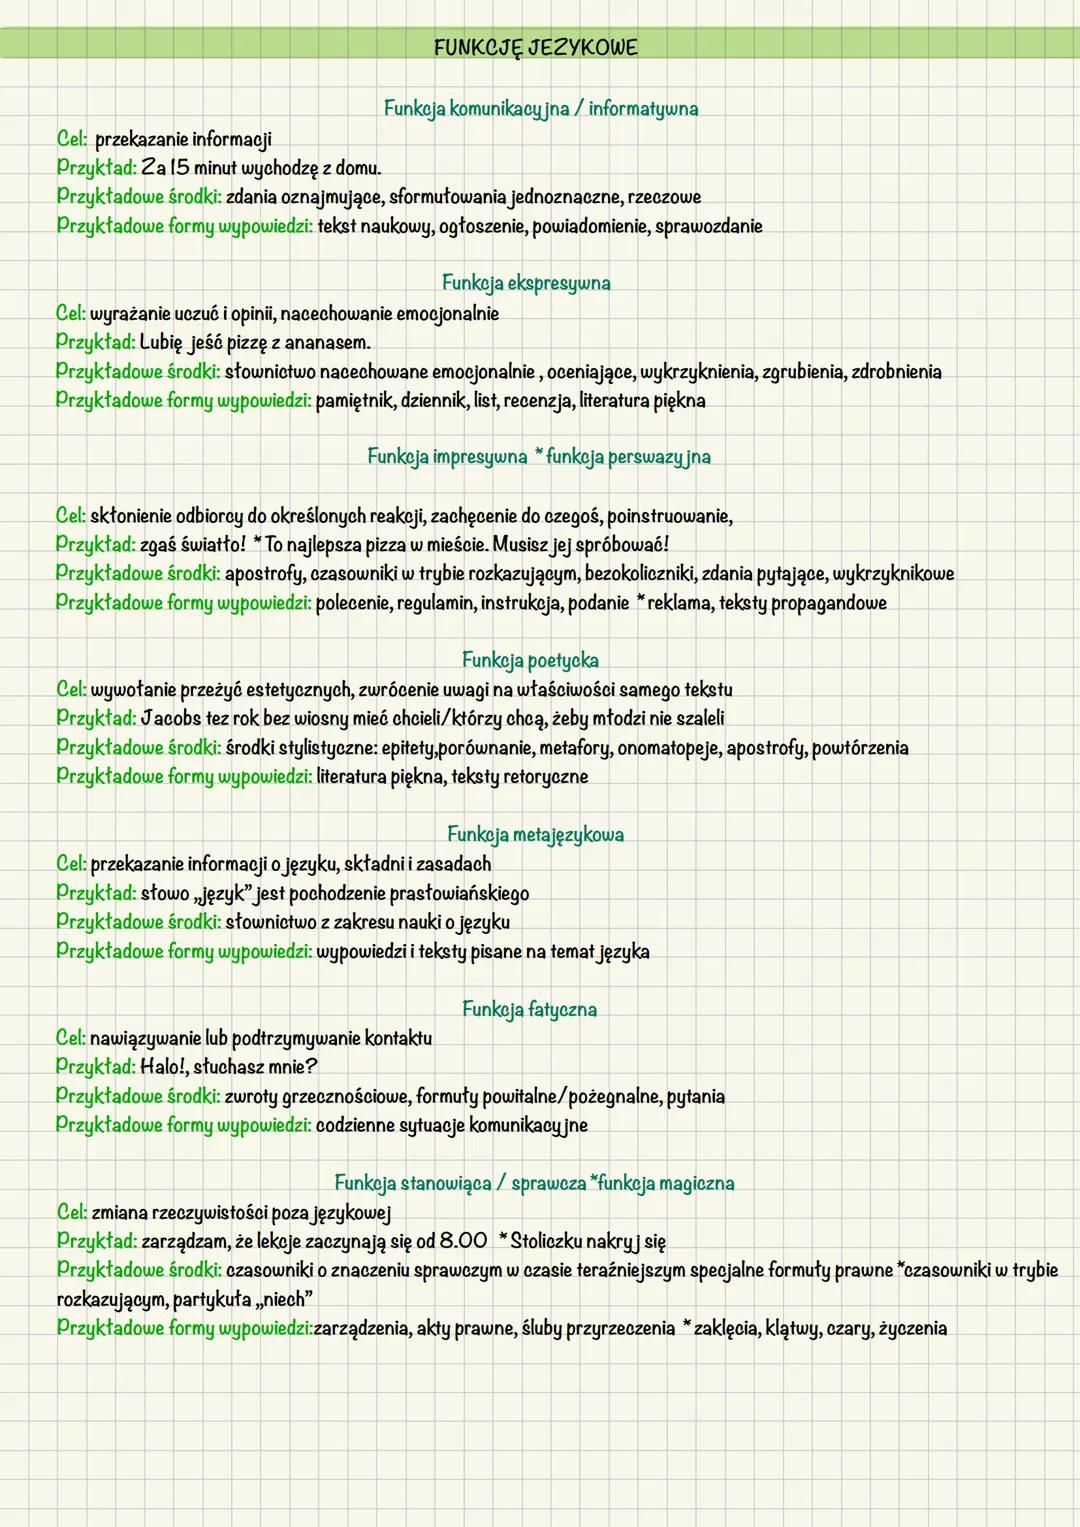 FUNKCJĘ JEZYKOWE
Funkcja komunikacyjna / informatywna
Cel: przekazanie informacji
Przykład: Za 15 minut wychodzę z domu.
Przykładowe środki: zdania oznajmujące, sformułowania jednoznaczne, rzeczowe
Przykładowe formy wypowiedzi: tekst naukowy, ogłoszenie, powiadomienie, sprawozdanie
Funkcja ekspresywna
Cel: wyrażanie uczuć i opinii, nacechowanie emocjonalnie
Przykład: Lubię jeść pizzę z ananasem.
Przykładowe środki: słownictwo nacechowane emocjonalnie , oceniające, wykrzyknienia, zgrubienia, zdrobnienia
Przykładowe formy wypowiedzi: pamiętnik, dziennik, list, recenzja, literatura piękna
Funkcja impresywna * funkcja perswazyjna
Cel: skłonienie odbiorcy do określonych reakcji, zachęcenie do czegoś, poinstruowanie,
Przykład: zgaś światło! * To najlepsza pizza w mieście. Musisz jej spróbować!
Przykładowe środki: apostrofy, czasowniki w trybie rozkazującym, bezokoliczniki, zdania pytające, wykrzyknikowe
Przykładowe formy wypowiedzi: polecenie, regulamin, instrukcja, podanie * reklama, teksty propagandowe
Funkcja poetycka
Cel: wywołanie przeżyć estetycznych, zwrócenie uwagi na właściwości samego tekstu
Przykład: Jacobs tez rok bez wiosny mieć chcieli/którzy chcą, żeby młodzi nie szaleli
Przykładowe środki: środki stylistyczne: epitety,porównanie, metafory, onomatopeje, apostrofy, powtórzenia
Przykładowe formy wypowiedzi: literatura piękna, teksty retoryczne
Funkcja metajęzykowa
Cel: przekazanie informacji o języku, składni i zasadach
Przykład: słowo „język” jest pochodzenie prasłowiańskiego
Przykładowe środki: słownictwo z zakresu nauki o języku
Przykładowe formy wypowiedzi: wypowiedzi i teksty pisane na temat języka
Funkcja fatyczna
Cel: nawiązywanie lub podtrzymywanie kontaktu
Przykład: Halo!, słuchasz mnie?
Przykładowe środki: zwroty grzecznościowe, formuły powitalne/pożegnalne, pytania
Przykładowe formy wypowiedzi: codzienne sytuacje komunikacyjne
Funkcja stanowiąca / sprawcza *funkcja magiczna
Cel: zmiana rzeczywistości poza językowej
Przykład: zarządzam, że lekcje zaczynają się od 8.00 * Stoliczku nakryj się
Przykładowe środki: czasowniki o znaczeniu sprawczym w czasie teraźniejszym specjalne formuły prawne *czasowniki w trybie
rozkazującym, partykuła „niech”
Przykładowe formy wypowiedzi:zarządzenia, akty prawne, śluby przyrzeczenia * zaklęcia, klątwy, czary, życzenia